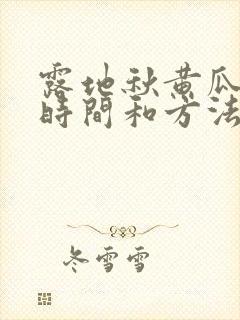 露地秋黄瓜
時間和方法
冬雪雪